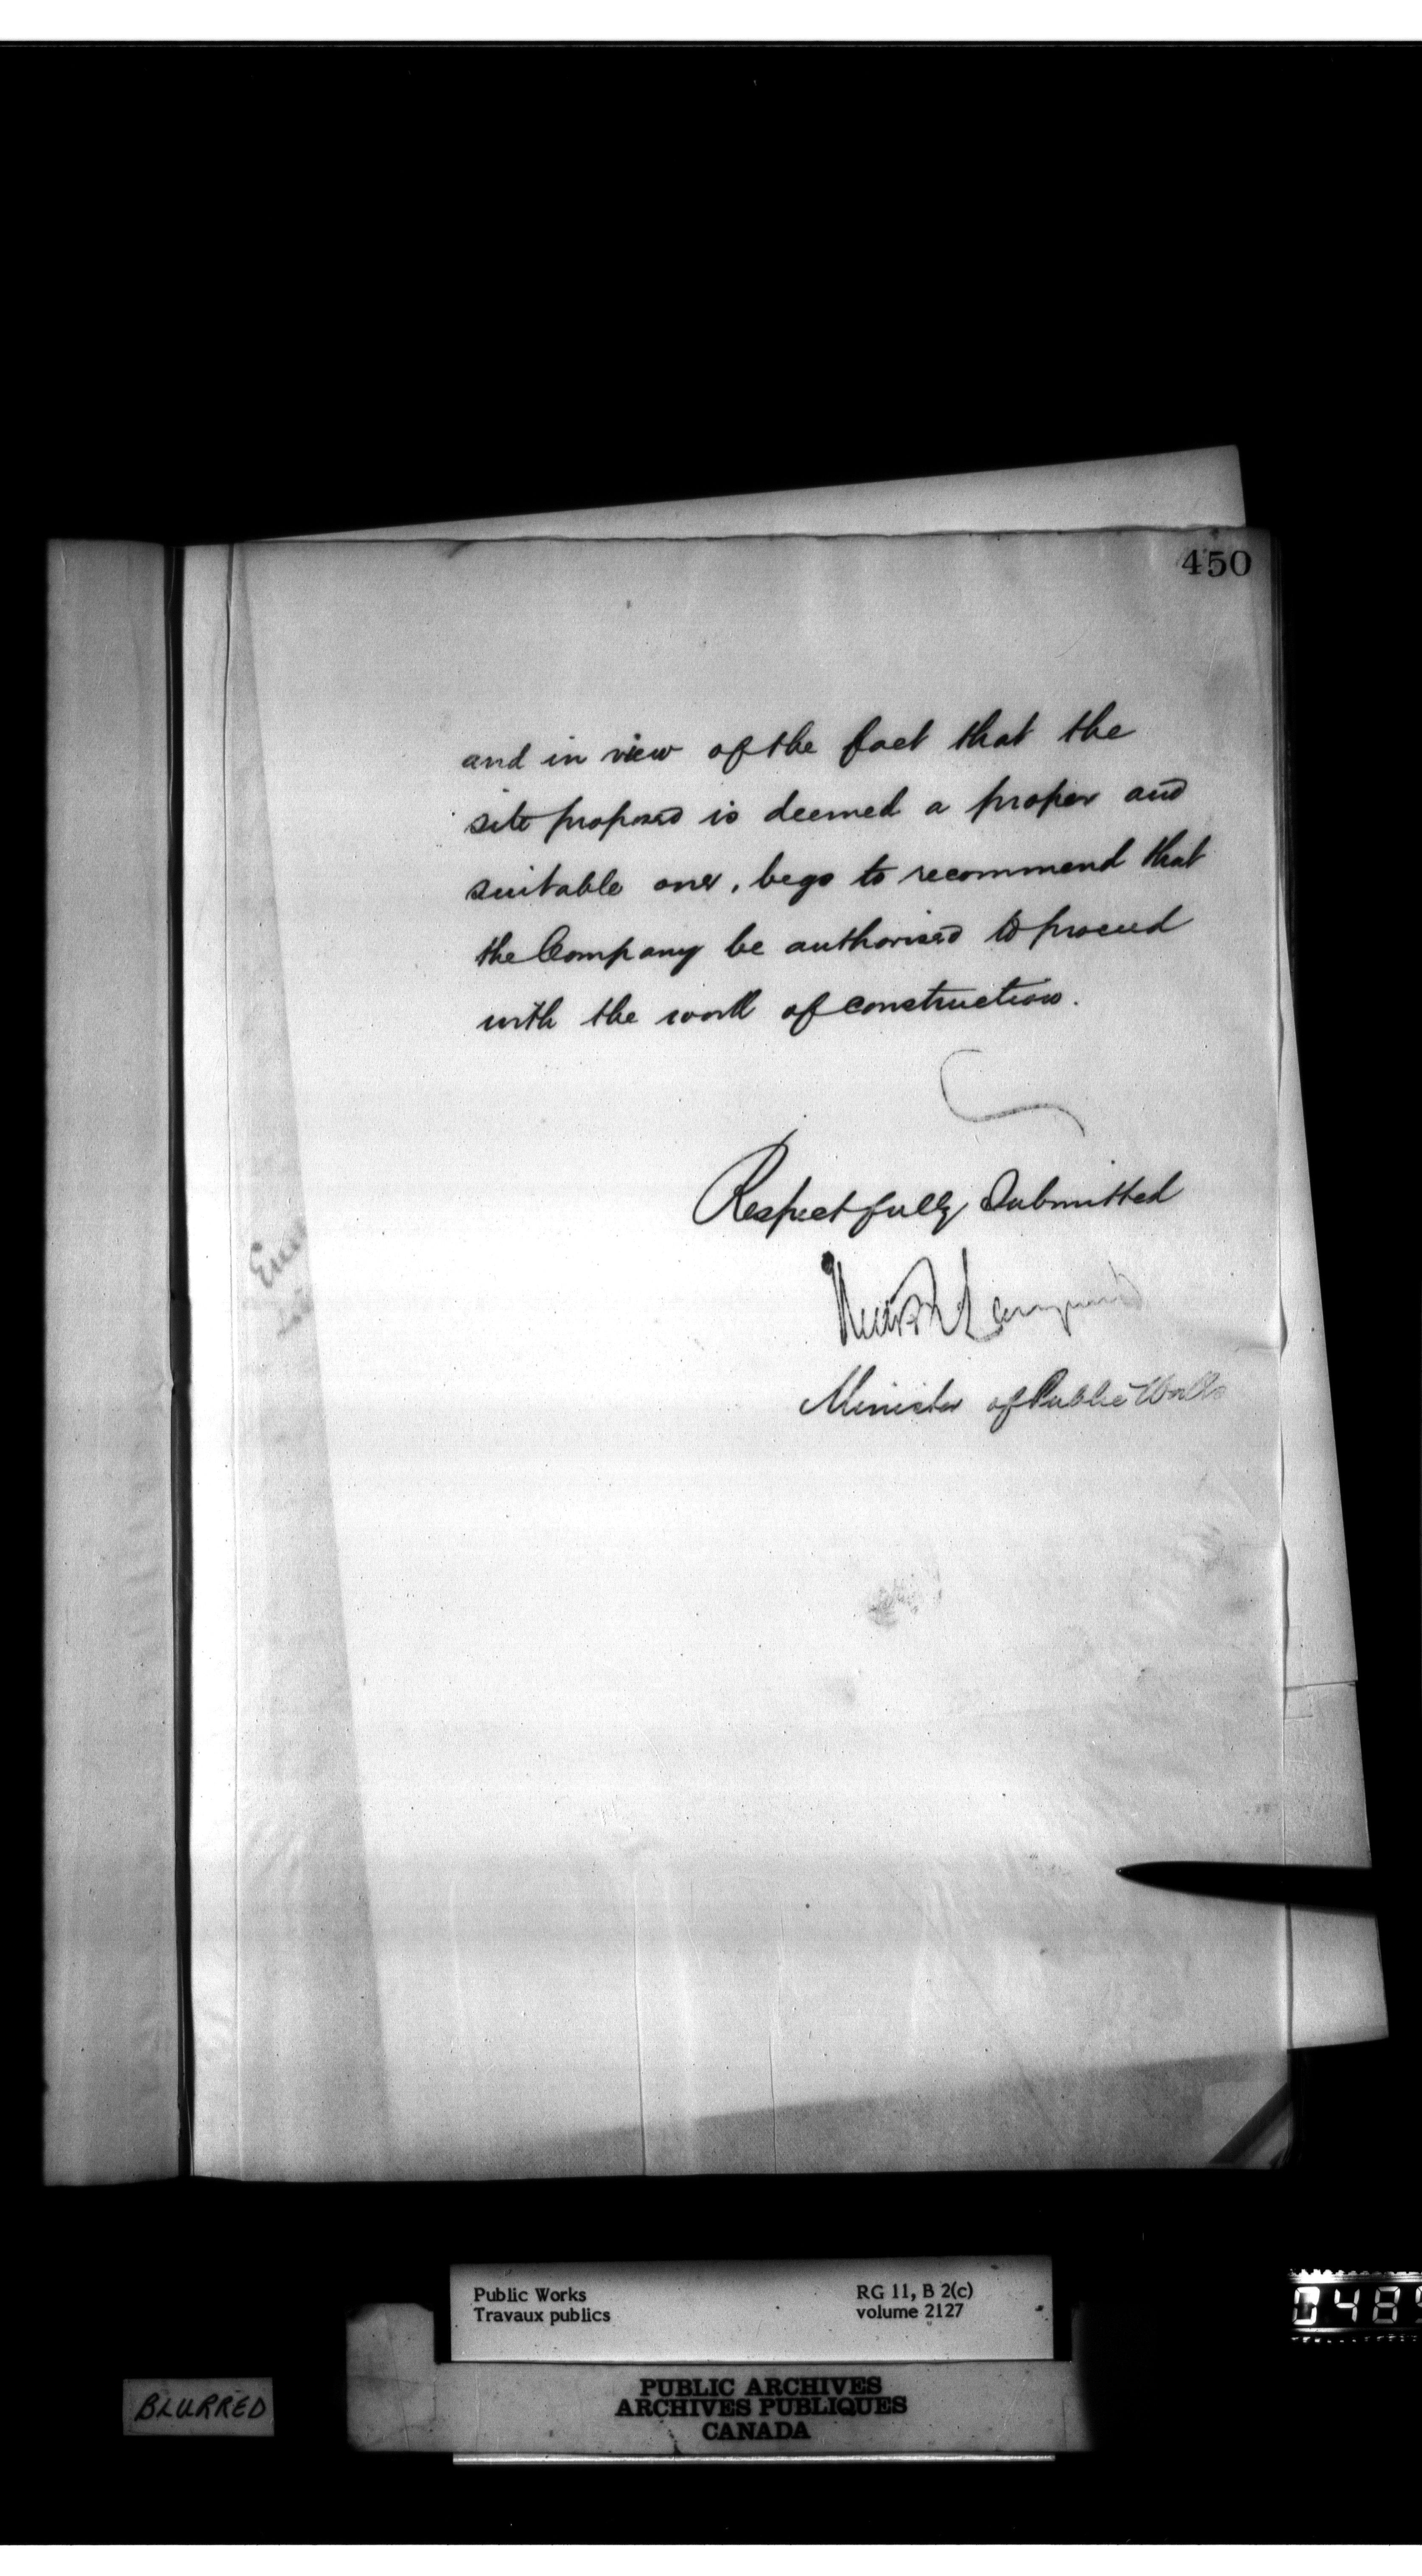 450
and in view of the fact that the
site proposed is deemed a proper and
suitable one, begs to recommend that
the Company be authorised to proceed
with the work of construction.
Respectfully Submitted
Minister of Public Works
Public Works
Travaux publics
RG 11, B 2(c)
volume 2127
BLURRED
PUBLIC ARCHIVES
ARCHIVES PUBLIQUES
CANADA